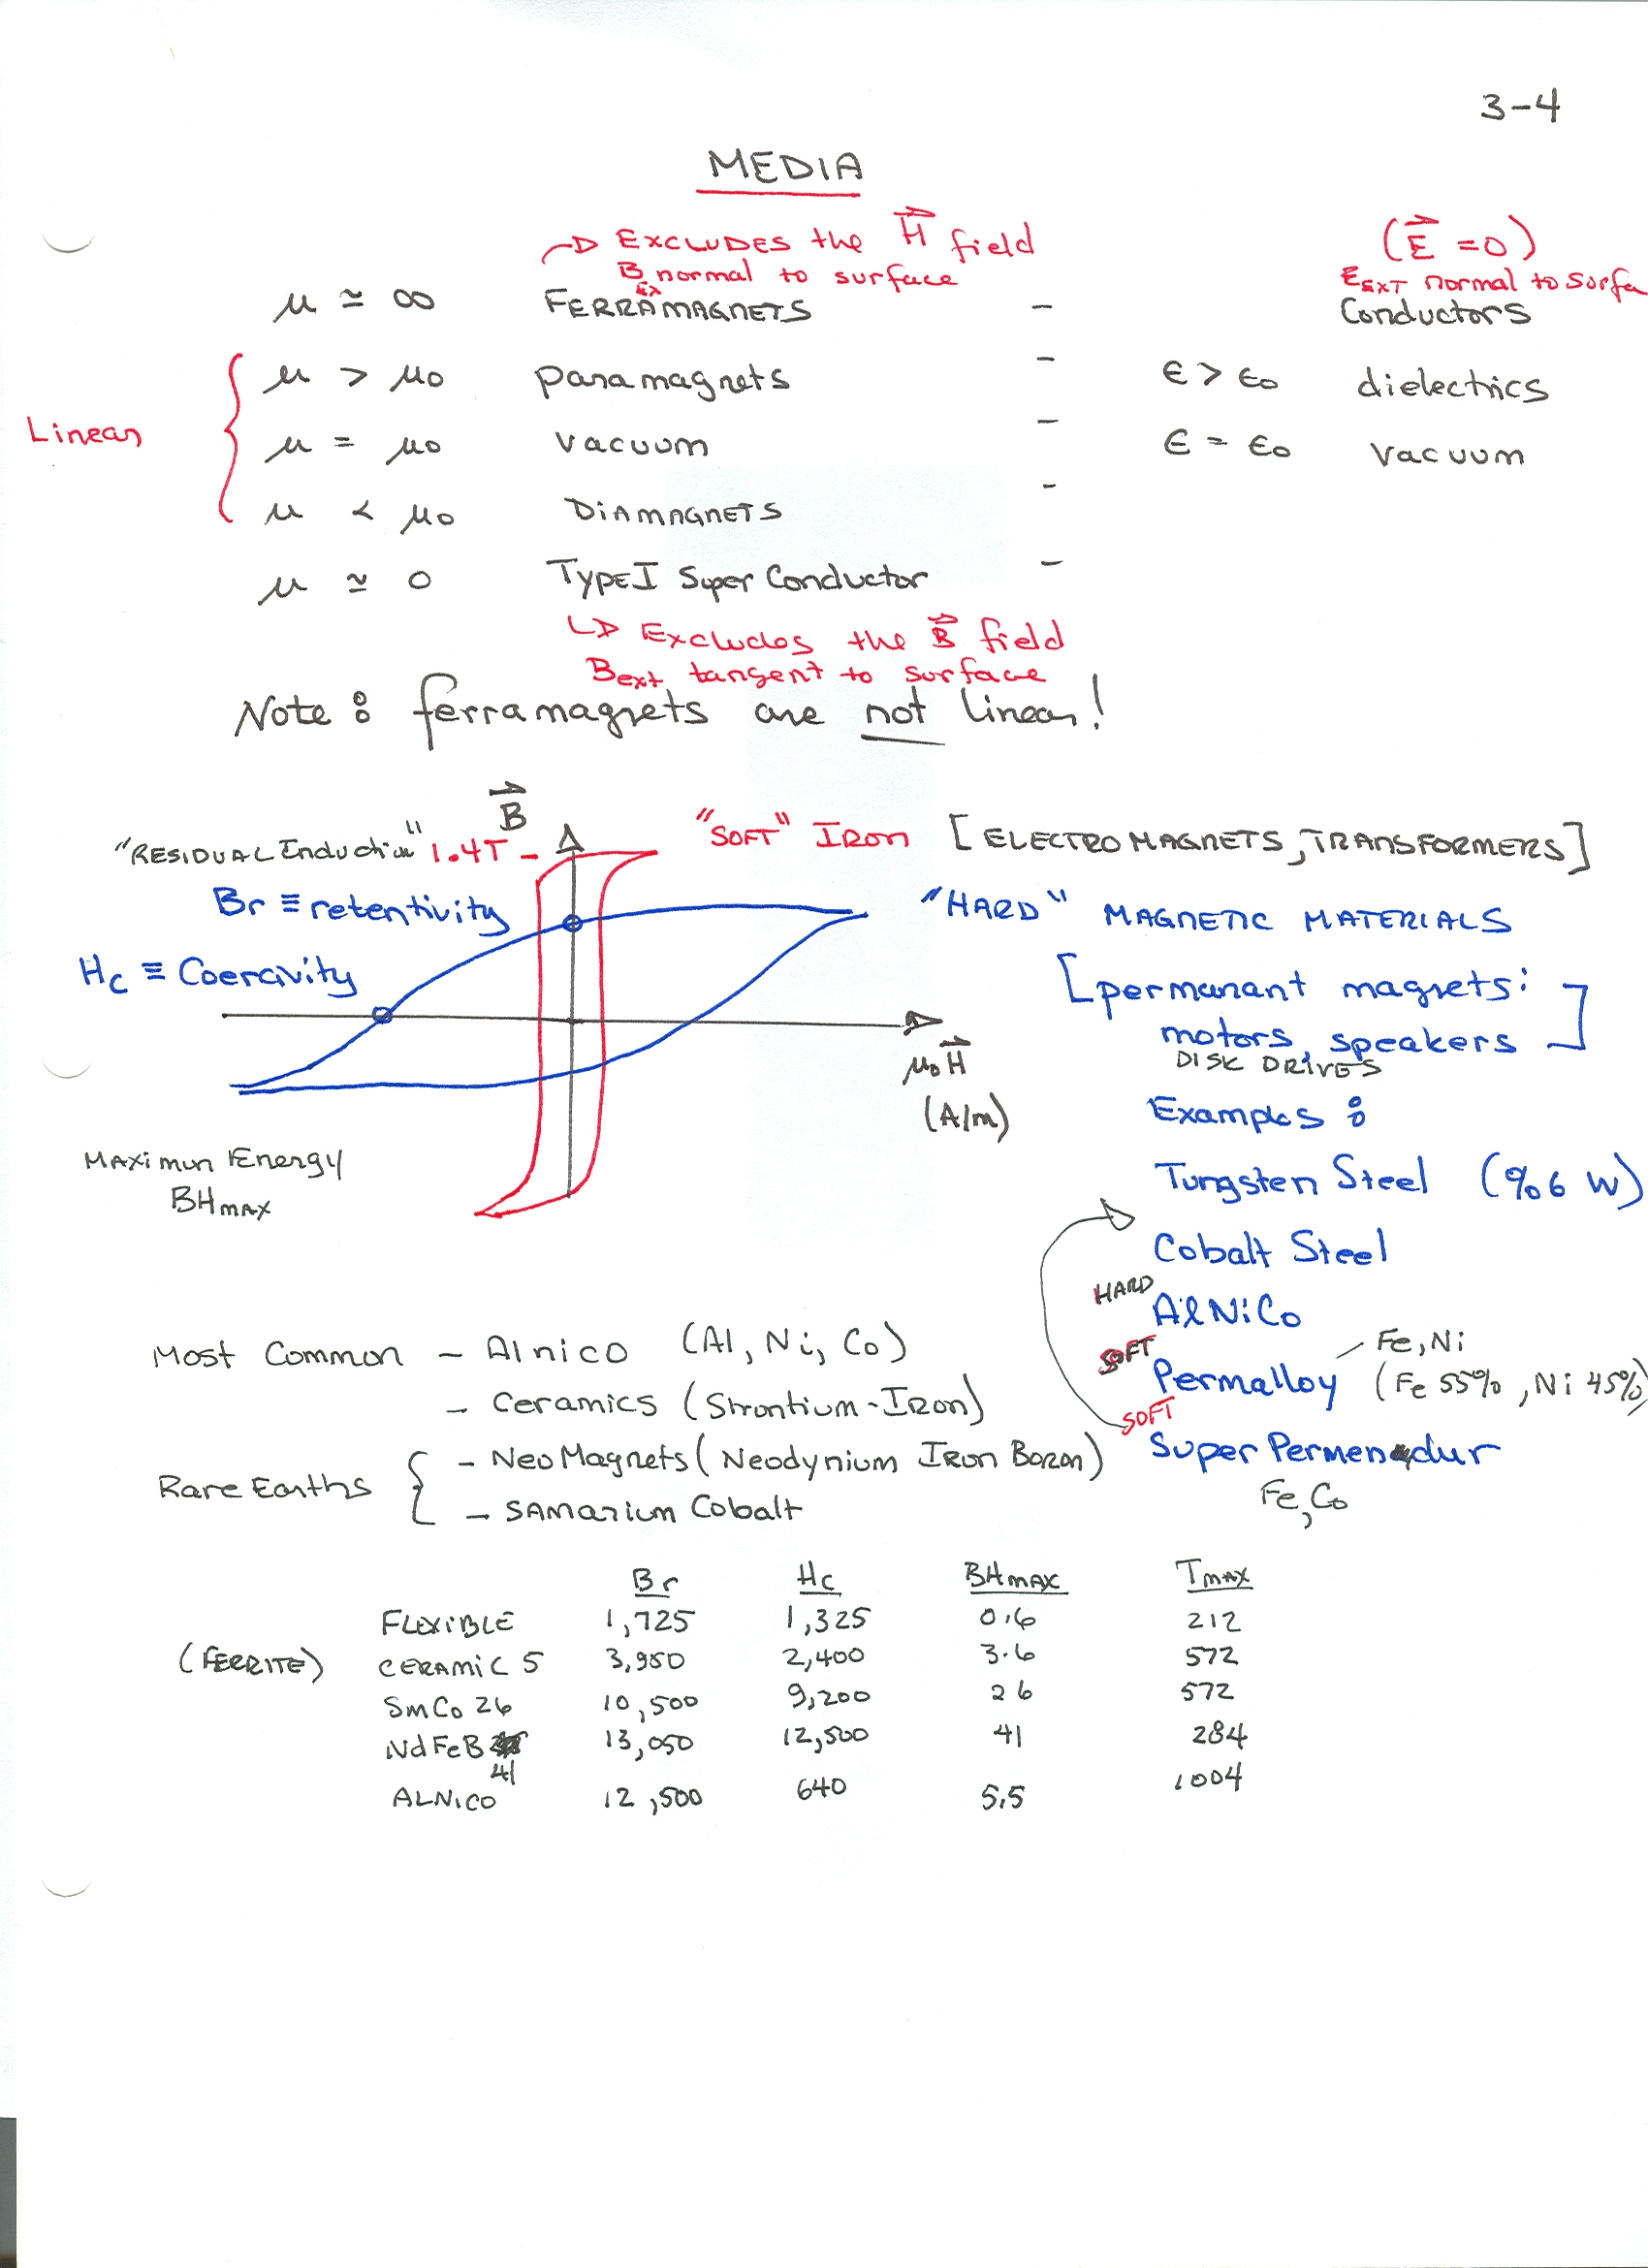 3-4
MEDIA
→ EXCLUDES the H field (E = 0)
B normal to surface EEXT normal to surfa
μ ≃ ∞ FERRAMAGNETS - Conductors
μ > μ0 paramagnets - ϵ > ϵ0 dielectrics
Linear
μ = μ0 vacuum - ϵ = ϵ0 vacuum
μ < μ0 DIAMAGNETS -
μ ≃ 0 TYPE I Super Conductor -
↳ Excludes the B field
Bext tangent to surface
Note: ferramagnets are not linear!
B
"RESIDUAL Induction" 1.4T - "SOFT" IRON [ELECTROMAGNETS, TRANSFORMERS]
Br ≡ retentivity "HARD" MAGNETIC MATERIALS
Hc ≡ Coercivity [permanant magnets:
motors, speakers]
DISK DRIVES
μ0H
(A/m)
Examples:
MAXIMUN Energy
BHMAX
Tungsten Steel (%6 W)
Cobalt Steel
HARD AlNiCo
Most Common - Alnico (Al, Ni, Co)
SOFT Permalloy - Fe, Ni
(Fe 55%, Ni 45%)
- Ceramics (Strontium-Iron)
SOFT Super Permendur
Fe, Co
Rare Earths { - Neo Magnets (Neodynium Iron Boron)
- SAMARIUM Cobalt
Br Hc BHMAX TMAX
FLEXIBLE 1,725 1,325 0.6 212
(FERRITE) CERAMIC 5 3,950 2,400 3.6 572
SmCo 26 10,500 9,200 26 572
NdFeB 41 13,050 12,500 41 284
ALNICO 12,500 640 5.5 1004